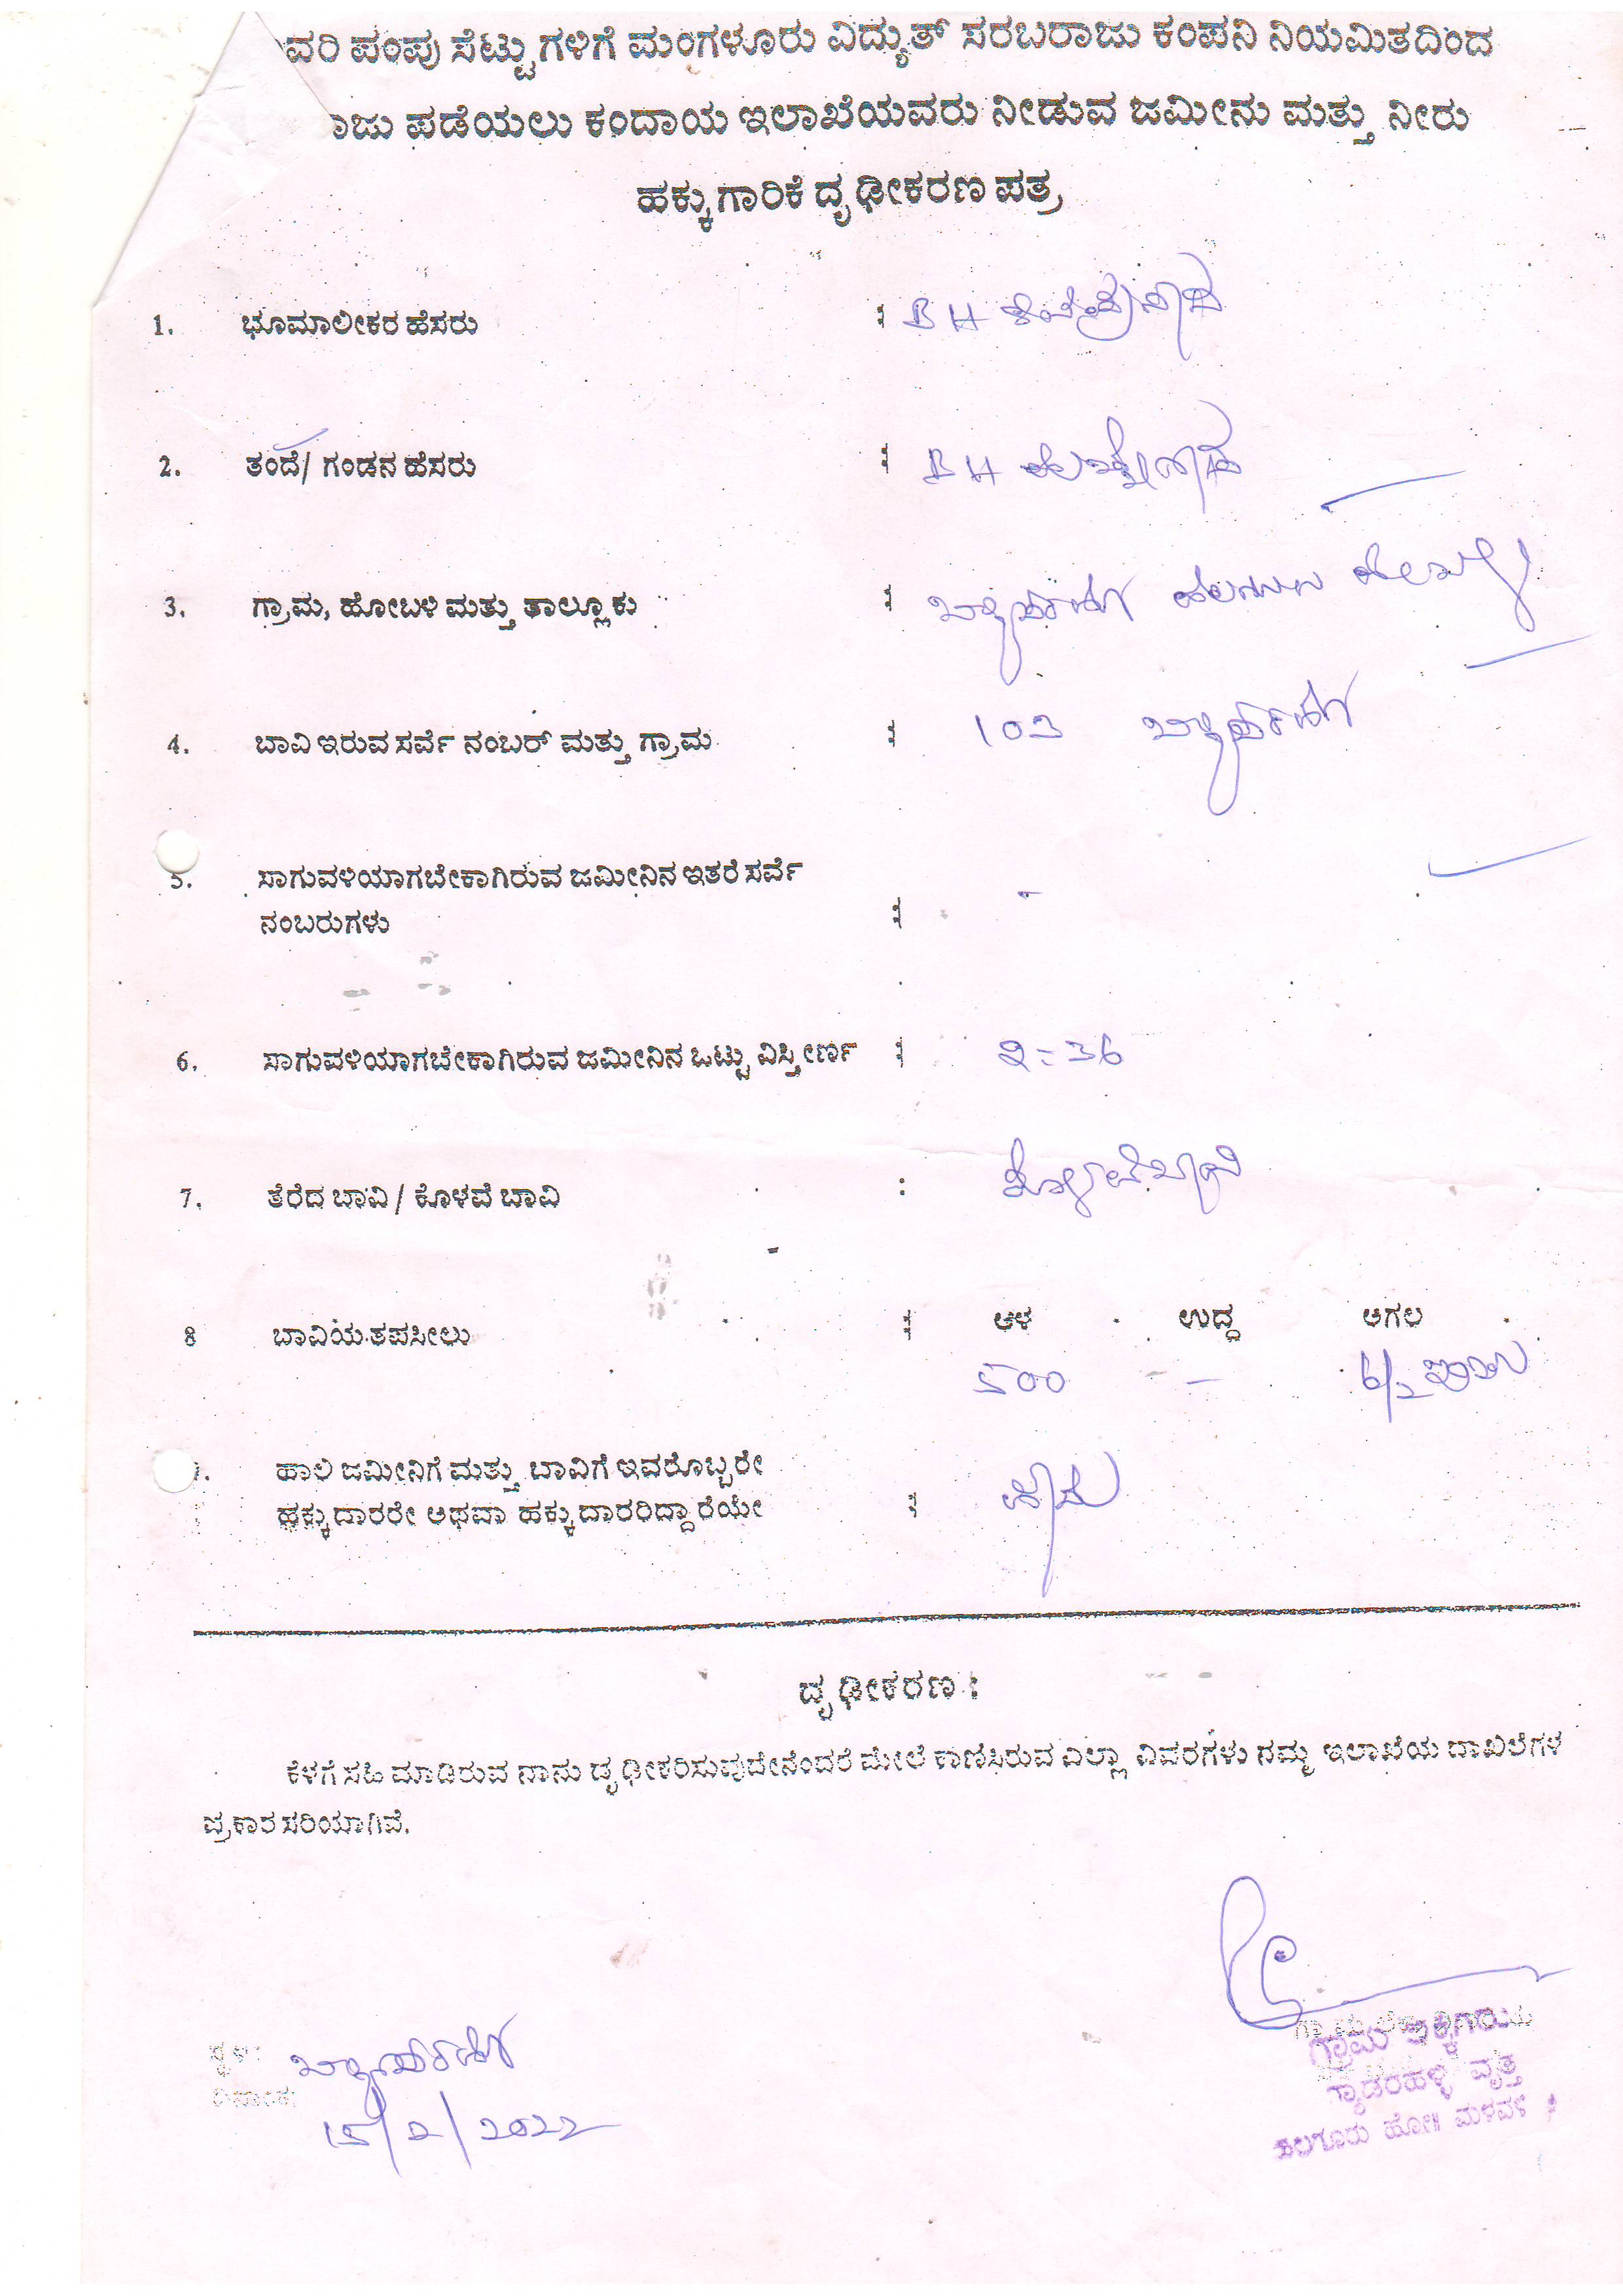 ವರಿ ಪಂಪು ಸೆಟ್ಟುಗಳಿಗೆ ಮಂಗಳೂರು ವಿದ್ಯುತ್ ಸರಬರಾಜು ಕಂಪನಿ ನಿಯಮಿತದಿಂದ
ಾಜು ಪಡೆಯಲು ಕಂದಾಯ ಇಲಾಖೆಯವರು ನೀಡುವ ಜಮೀನು ಮತ್ತು ನೀರು
ಹಕ್ಕುಗಾರಿಕೆ ದೃಢೀಕರಣ ಪತ್ರ
1. ಭೂಮಾಲೀಕರ ಹೆಸರು : BH
2. ತಂದೆ/ ಗಂಡನ ಹೆಸರು : BH
3. ಗ್ರಾಮ, ಹೋಬಳಿ ಮತ್ತು ತಾಲ್ಲೂಕು :
4. ಬಾವಿ ಇರುವ ಸರ್ವೆ ನಂಬರ್ ಮತ್ತು ಗ್ರಾಮ : 103
5. ಸಾಗುವಳಿಯಾಗಬೇಕಾಗಿರುವ ಜಮೀನಿನ ಇತರೆ ಸರ್ವೆ
ನಂಬರುಗಳು : -
6. ಸಾಗುವಳಿಯಾಗಬೇಕಾಗಿರುವ ಜಮೀನಿನ ಒಟ್ಟು ವಿಸ್ತೀರ್ಣ : 2=36
7. ತೆರೆದ ಬಾವಿ / ಕೊಳವೆ ಬಾವಿ : ಕೊಳವೆಬಾವಿ
8 ಬಾವಿಯ ತಪಸೀಲು : ಆಳ ಉದ್ದ ಅಗಲ
500 - 6/2
. ಹಾಲಿ ಜಮೀನಿಗೆ ಮತ್ತು ಬಾವಿಗೆ ಇವರೊಬ್ಬರೇ
ಹಕ್ಕುದಾರರೇ ಅಥವಾ ಹಕ್ಕುದಾರರಿದ್ದಾರೆಯೇ : ಹೌದು
ದೃಢೀಕರಣ :
ಕೆಳಗೆ ಸಹಿ ಮಾಡಿರುವ ನಾನು ದೃಢೀಕರಿಸುವುದೇನೆಂದರೆ ಮೇಲೆ ಕಾಣಿಸಿರುವ ಎಲ್ಲಾ ವಿವರಗಳು ನಮ್ಮ ಇಲಾಖೆಯ ದಾಖಲೆಗಳ
ಪ್ರಕಾರ ಸರಿಯಾಗಿವೆ.
ಸ್ಥಳ:
ದಿನಾಂಕ:
15/2/2022
ಗ್ರಾಮ ಲೆಕ್ಕಿಗರು
ವೃತ್ತ
ಹಲಗೂರು ಹೋ॥ ಮಳವಳ್ಳಿ